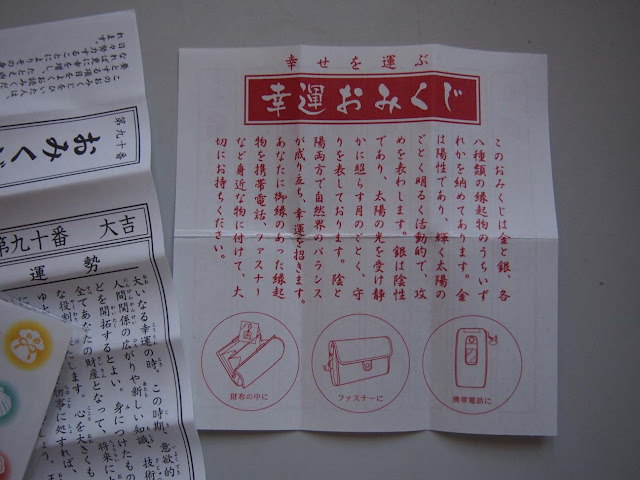 幸せを運ぶ
幸運おみくじ
このおみくじは金と銀、各
八種類の縁起物のうちいず
れかを納めてあります。金
は陽性であり、輝く太陽の
ごとく明るく活動的で、攻
めを表わします。銀は陰性
であり、太陽の光を受け静
かに照らす月のごとく、守
りを表しております。陰と
陽両方で自然界のバランス
が成り立ち、幸運を招きます。
あなたに御縁のあった縁起
物を携帯電話、ファスナー
など身近な物に付けて、大
切にお持ちください。
財布の中に
ファスナーに
携帯電話に
第九十番
おみく
第九十番 大吉
運勢
大いなる幸運の時。この時期、意欲的
人間関係の広がりや新しい知識、技術
どを開拓するとよい。身につけたもの
全てあなたの財産となって、将来に
な役割
します。心を大きくも
物事に処すれば、